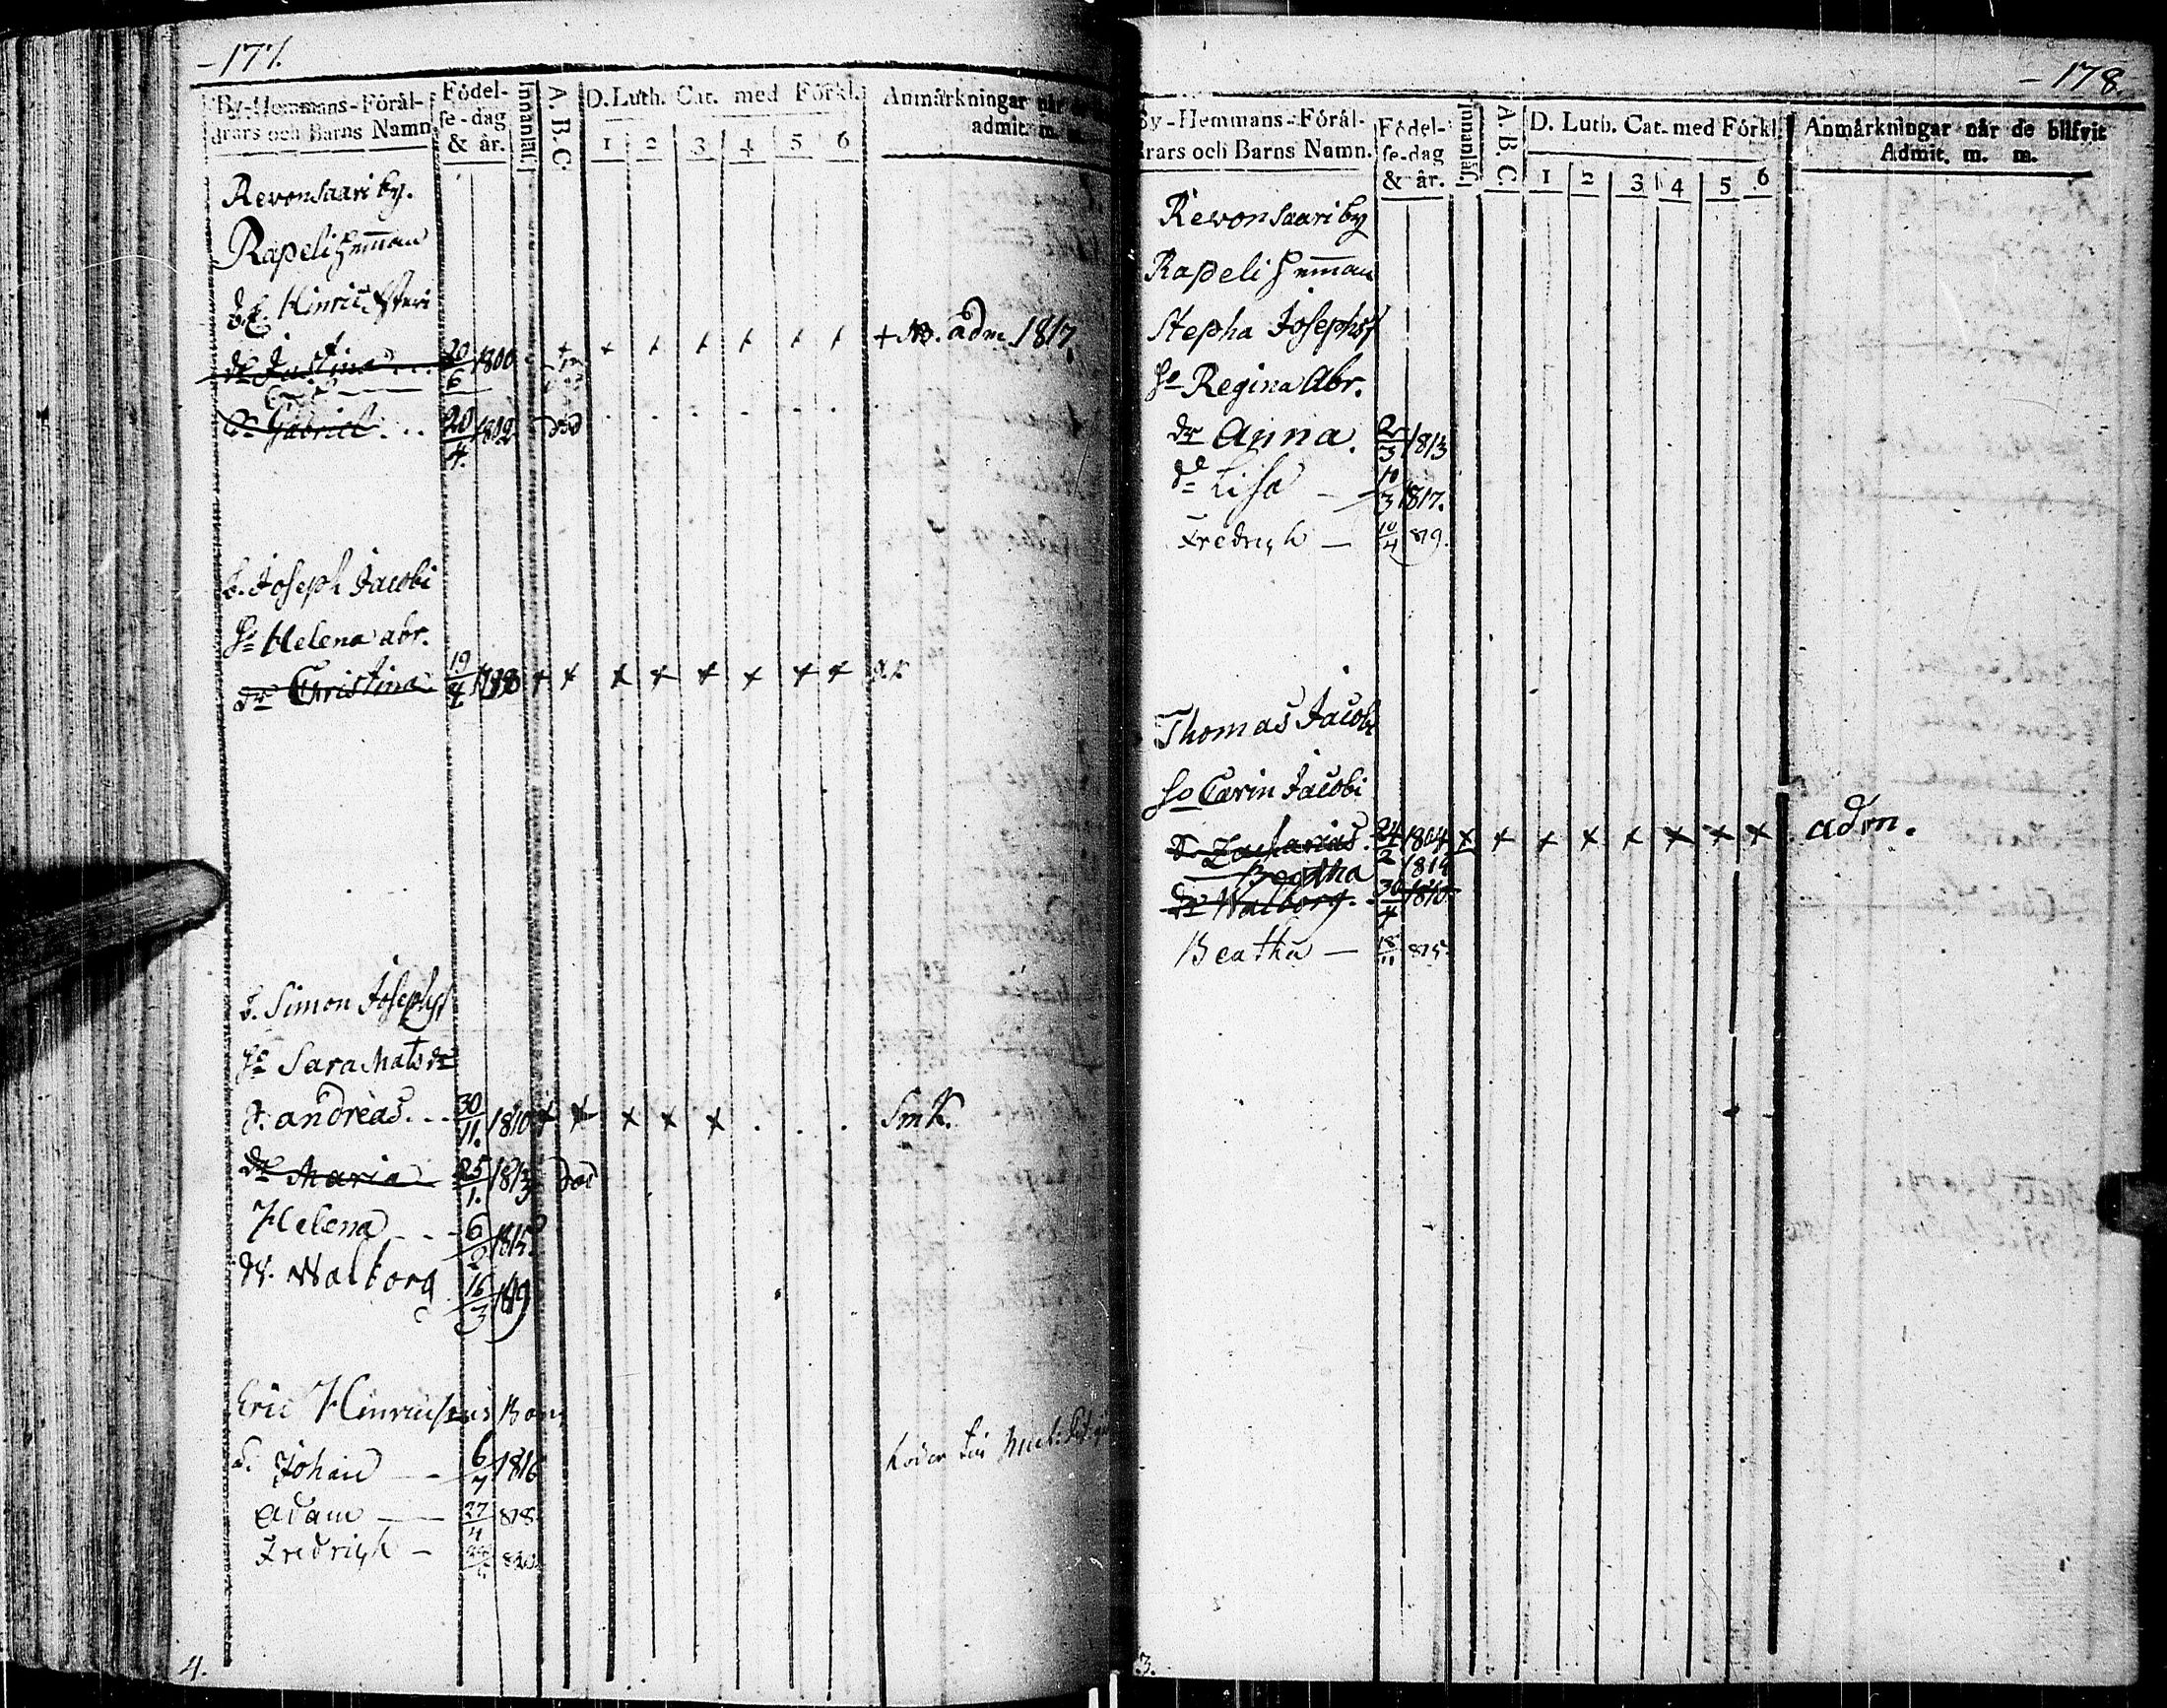 -177.
By-Hemmans-Föräl-
drars och Barns Namn.
Födel-
se-dag
& år.
Innanläs.
A. B. C.
D. Luth. Cat. med Förkl.
1 2 3 4 5 6
Anmärkningar när de
admit. m. m.
Revonsaari by.
Rapeli Hemman
Hinric
dr Justina 20/6 1800 + + + + + + + + NB. adm. 1817.
S. Gabriel 20/4. 1802 död
B. Joseph Jacobi
ho Helena abr.
dr Christina 19/4 1798 + + + + + + + +
B. Simon Josephss
ho Sara Mats dr
S. andreas 30/11. 1810 + + + + + . . . SmK.
dr Maria 25/1. 1813 död
Helena 6/2 1815
dr. Walborg 16/3 1819
Eric Hinrichsons Barn
S. Johan 6/7 1816
Adam 27/4 818
Fredrich 820
4.
-178.
By-Hemmans-Föräl-
drars och Barns Namn.
Födel-
se-dag
& år.
Innanläs.
A. B. C.
D. Luth. Cat. med Förkl.
1 2 3 4 5 6
Anmärkningar när de blifvit
Admit. m. m.
Revonsaari by
Rapeli Hemman
Stepha Josephss
ho Regina Abr.
dr Anna. 2/3 1813
dr Lisa 10/3 1817.
Fredrich 10/4 819.
Thomas Jacobi
ho Carin Jacobi
S. Zacharias 24/2 1804 + + + + + + + + adm.
Beatha 1814
dr Walborg. 30/4 1810
Beatha 18/11 815.
3.